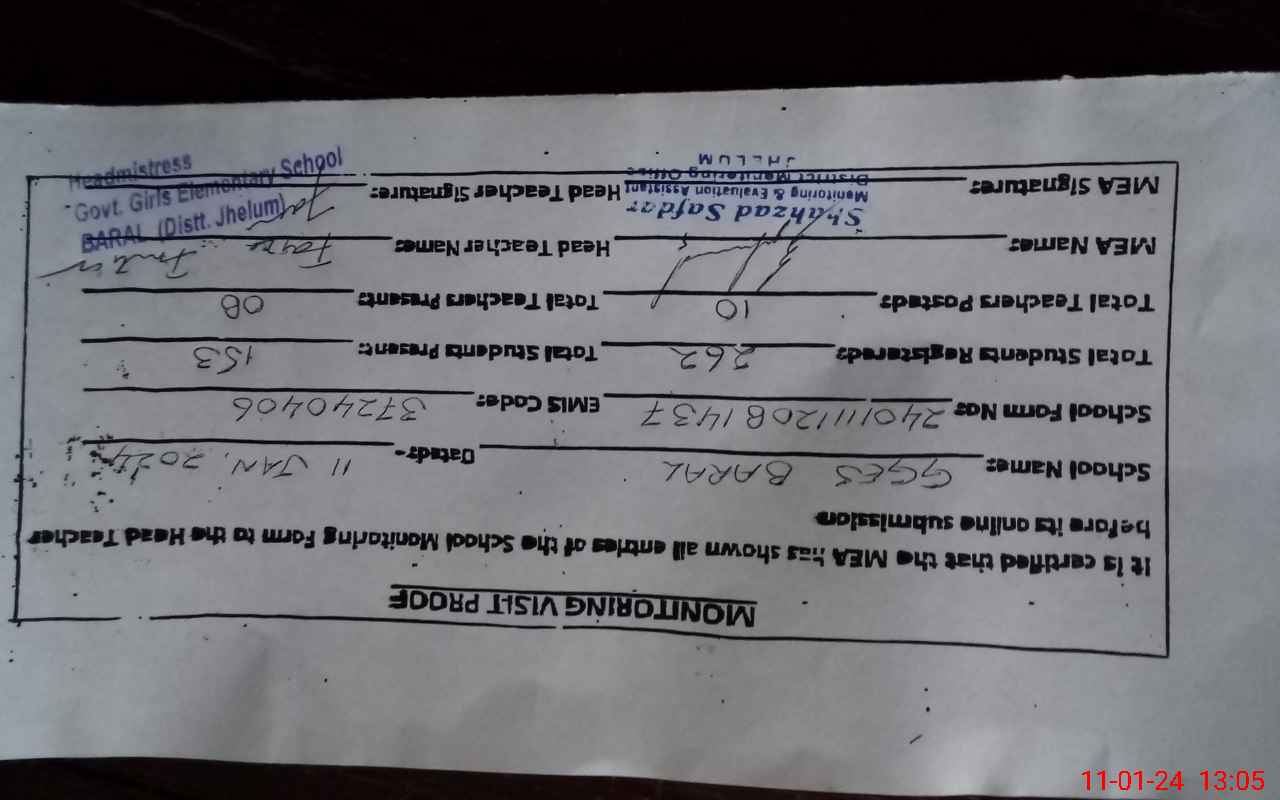 MONITORING VISIT PROOF
It is certified that the MEA has shown all entries of the School Monitoring Form to the Head Teacher
before its online submission
School Name: GGES BARAL Dated:- 11 JAN, 2024
School Form No: 2401111208 1437 EMIS Code: 37240406
Total Students Registered: 262 Total Students Present: 153
Total Teachers Posted: 10 Total Teachers Present: 08
MEA Name: Head Teacher Name:
Shahzad Safdar
Monitoring & Evaluation Assistant
District Monitoring Office
JHELUM
MEA Signature: Head Teacher Signature:
Headmistress
Govt. Girls Elementary School
BARAL (Distt. Jhelum)
11-01-24 13:05